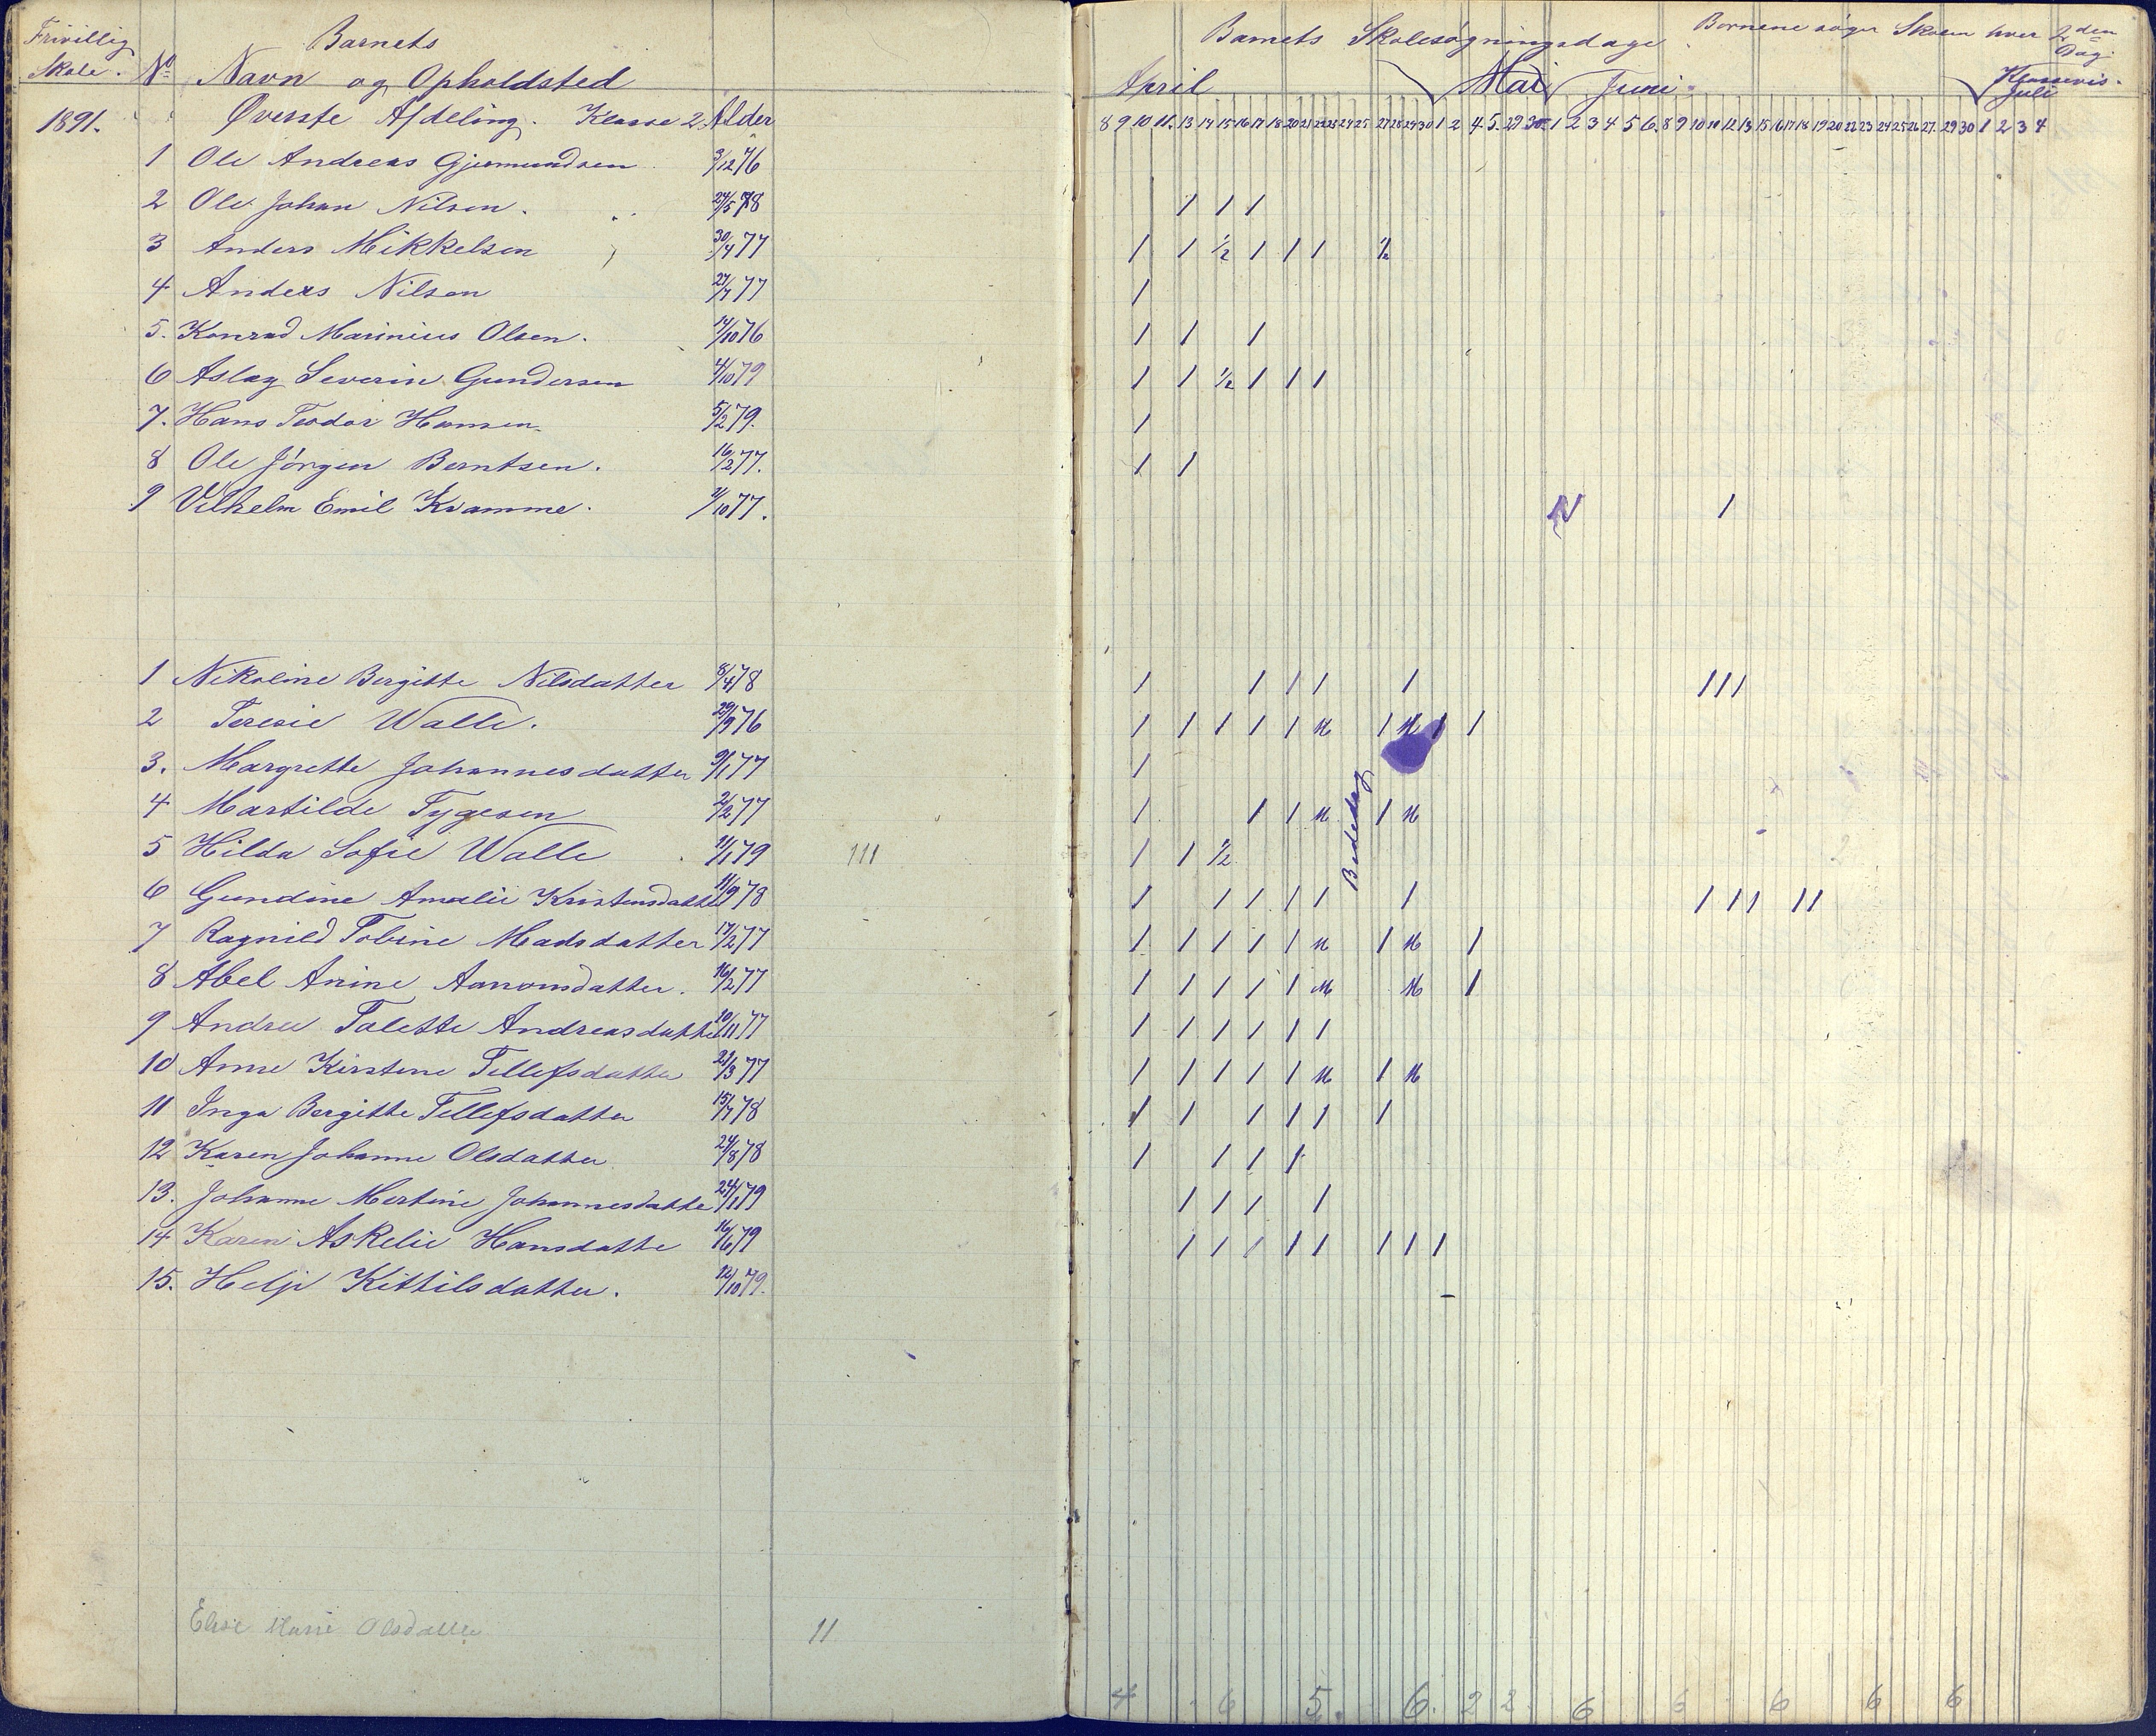 Frivillig
Skole.
1891.
Barnets
No Navn og Opholdsted
Øverste Afdeling. Klasse 2. Alder
1 Ole Andreas Gjermundsen 3/12 76
2 Ole Johan Nilsen. 24/5 78
3 Anders Mikkelsen 30/4 77
4 Anders Nilsen 27/7 77
5. Konrad Marinius Olsen. 14/10 76
6 Aslag Severin Gundersen 4/10 79
7. Hans Teodor Hansen. 5/2 79.
8 Ole Jørgen Berntsen. 16/2 77.
9 Vilhelm Emil Kvamme. /10 77.
1 Nikoline Bergitte Nilsdatter 8/4 78
2 Teresie Walle. 29/9 76
3. Margrette Johannesdatter 9/1 77
4 Martilde Tygesen 2/2 77
5 Hilda Sofie Walle 11/1 79 111
6 Gundine Amalie Kristensdatter 11/9 78
7 Ragnild Tobine Madsdatter 17/2 77
8 Abel Anine Aanonsdatter. 16/2 77
9 Andrea Talette Andreasdatter 10/11 77
10 Anne Kirstene Tellefsdatter 21/3 77
11 Inga Bergitte Tellefsdatter 15/7 78
12 Karen Johanne Olsdatter 24/8 78
13. Johanne Mertine Johannesdatter 24/1 79
14 Karen Askelie Hansdatte 16/6 79
15. Helje Kittilsdatter. 12/10 79.
Elise Marie Olsdatter 11
Barnets Skolesøgningsdage. Børnene søger Skolen hver 2den Dag
Klassevis.
April Mai Juni Juli
8 9 10 11. 13 14 15 16 17 18 20 21 22 23 24 25 27 28 29 30 1 2 4. 5. 29 30. 1 2 3 4 5 6. 8 9 10 11 12 13 15 16 17 18 19 20 22 23 24 25 26 27. 29 30 1 2 3 4
1 1 1
1 1 1/2 1 1 1 1/2
1
1 1 1
1 1 1/2 1 1 1
1
1 1
1
1 1 1 1 1 1 1 1
1 1 1 1 1 1 1 1
1
1 1 1 1
Bededag
1 1 1/2
1 1 1 1 1 1 1 1 1 1 1
1 1 1 1 1 1 1
1 1 1 1 1 1
1 1 1 1 1 1
1 1 1 1 1 1
1 1 1 1 1 1
1 1 1 1
1 1 1 1
1 1 1 1 1 1 1 1
4 6 5. 6. 2 2 6 6 6 6 6